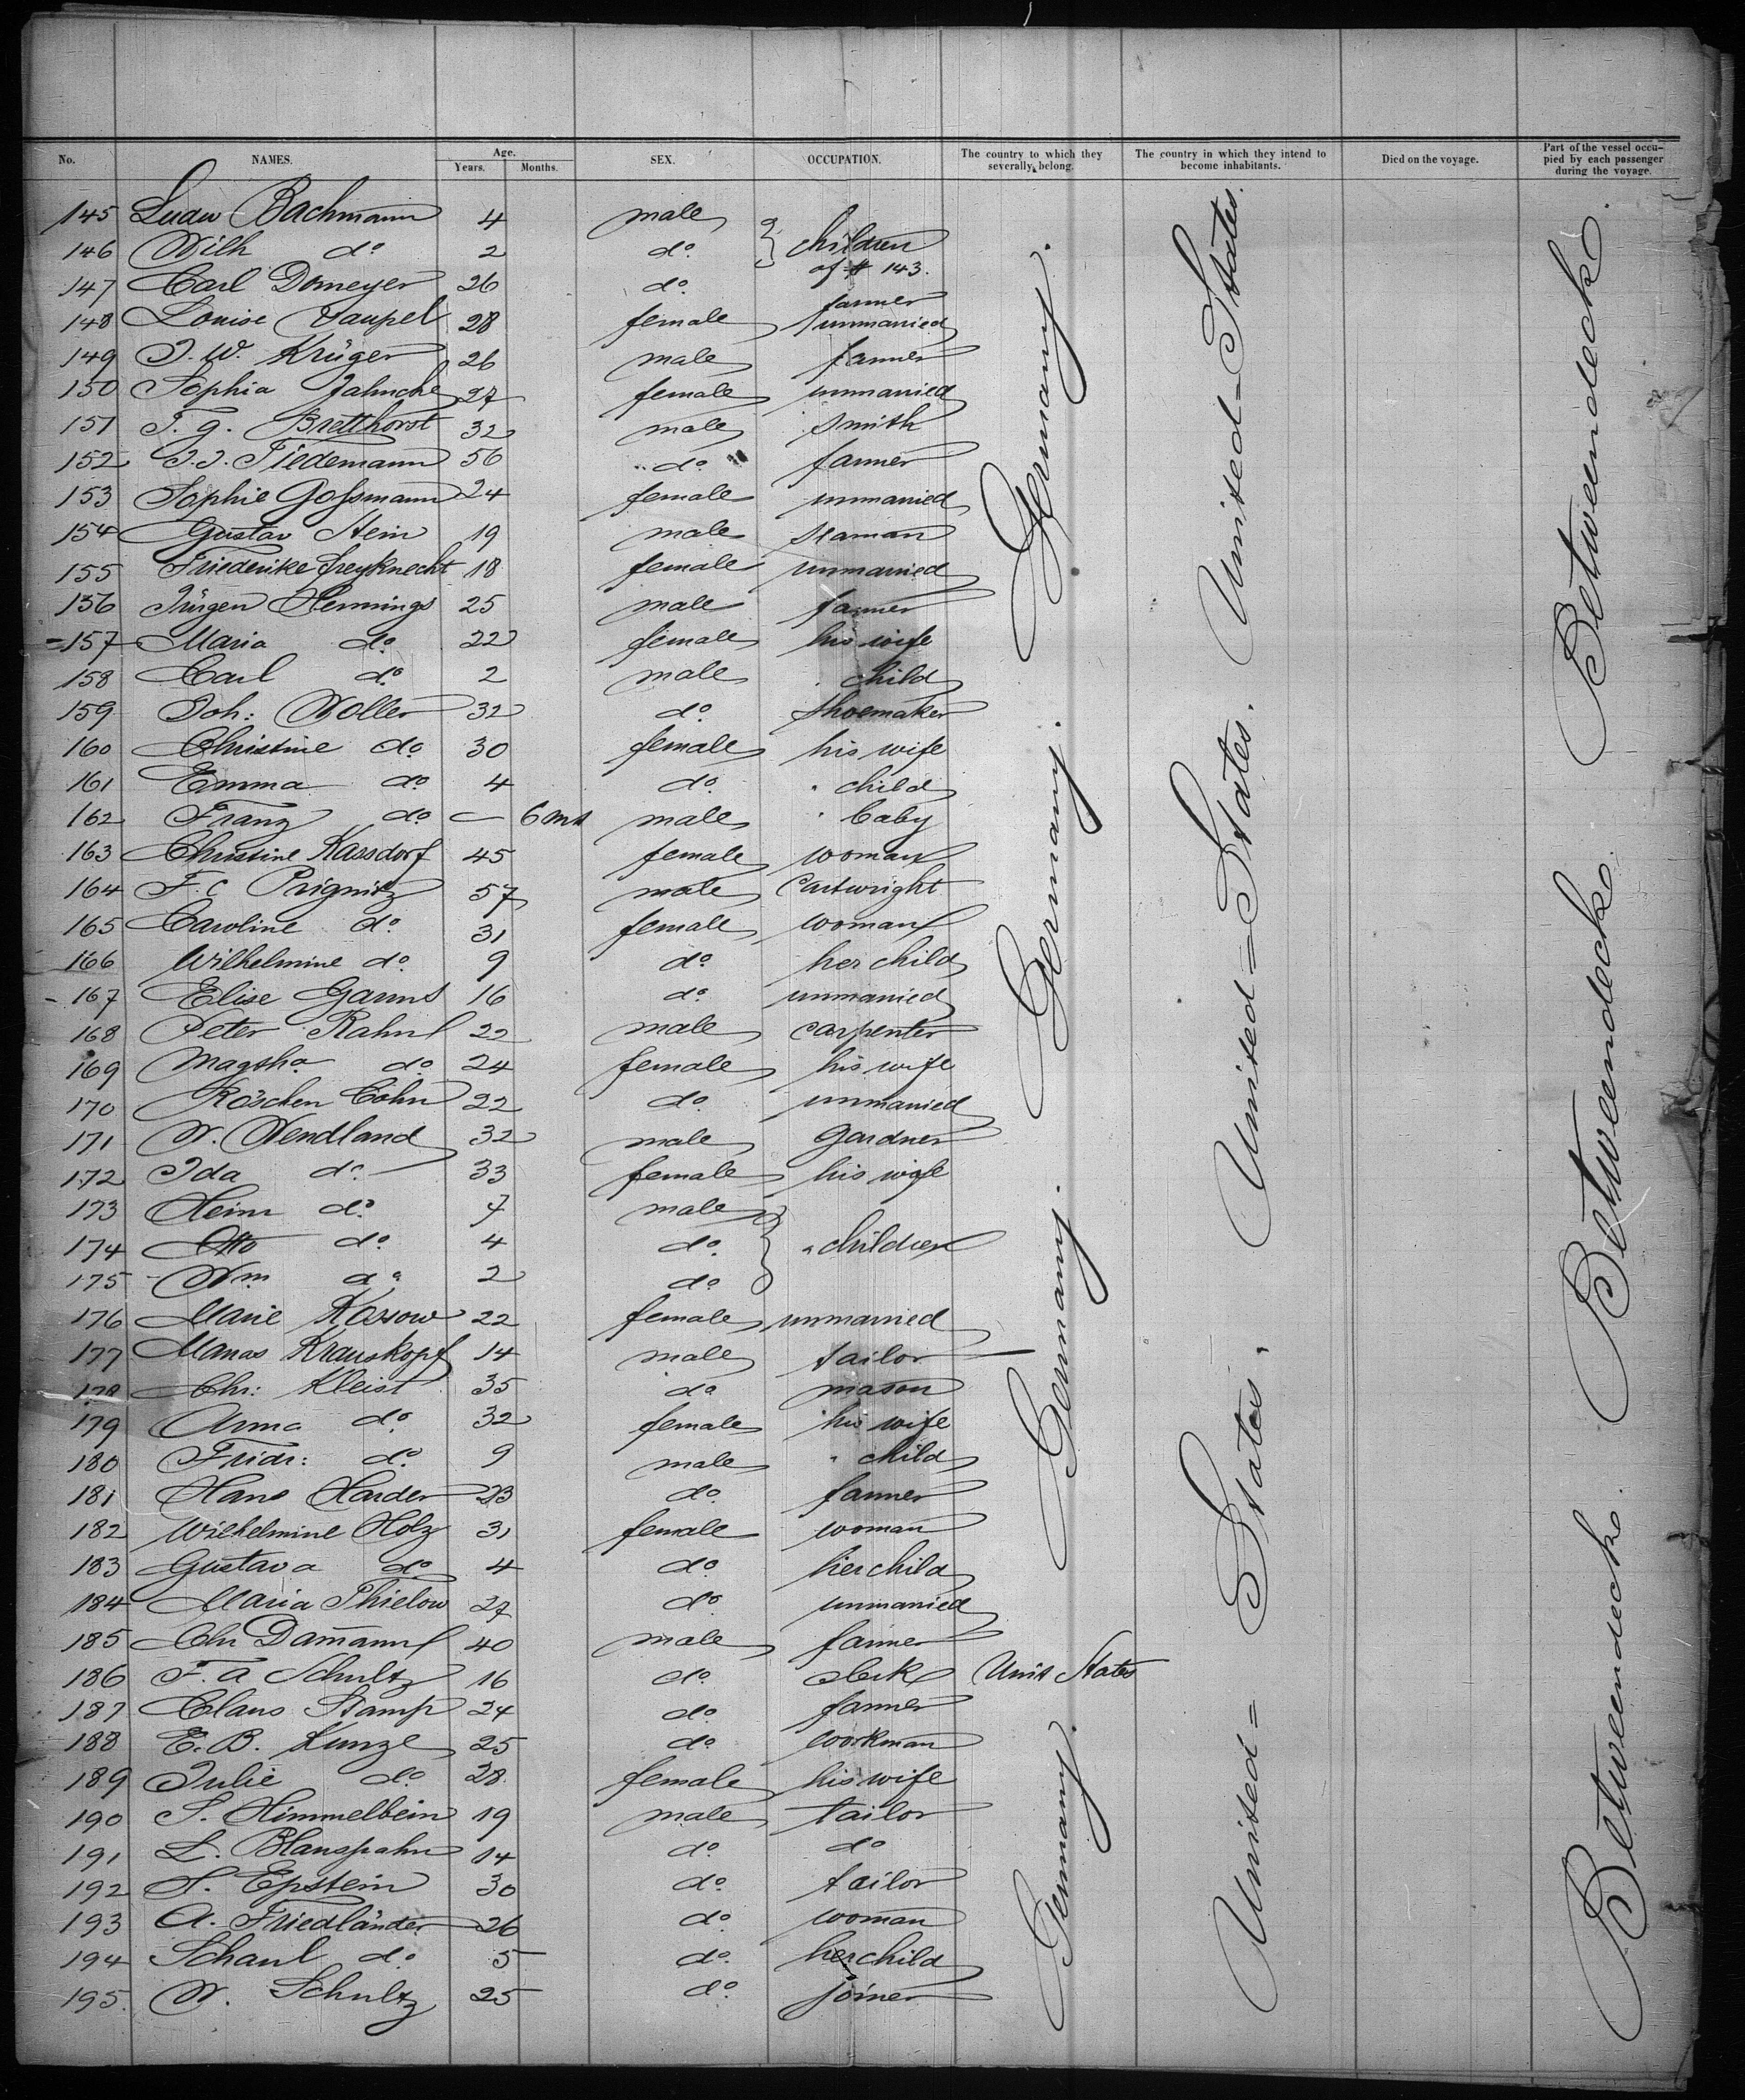 No. NAMES. Age. Years. Months. SEX. OCCUPATION. The country to which they severally belong. The country in which they intend to become inhabitants. Died on the voyage. Part of the vessel occupied by each passenger during the voyage.
145 Ludw Bachmann 4 male } children
146 Wilh do 2 do. of # 143.
147 Carl Domeyer 26 do. farmer
148 Louise Vaupel 28 female unmarried
149 J. W. Krüger 26 male farmer
150 Sophia Jahncke 27 female unmarried
151 F. G. Bretthorst 32 male Smith
152 J. J. Tiedemann 56 do farmer
153 Sophie Gossmann 24 female unmarried
154 Gustav Stein 19 male seaman
155 Friederike Freyknecht 18 female unmarried
156 Jürgen Hennings 25 male farmer
157 Maria do. 22 female his wife
158 Carl do. 2 male " child
159 Joh: Woller 32 do. shoemaker
160 Christine do. 30 female his wife
161 Emma do 4 do. " child
162 Franz do. — 6 ms male " baby
163 Christine Kassdorf 45 female woman
164 F. C Prignitz 57 male Cartwright
165 Caroline do. 31 female woman
166 Wilhelmine do. 9 do. her child
167 Elise Garms 16 do. unmarried
168 Peter Rahn 22 male carpenter
169 Magtha do 24 female his wife
170 Röschen Cohn 22 do. unmarried
171 W. Wendland 32 male Gardner
172 Ida do. 33 female his wife
173 Heinr do. 7 male
174 Otto do. 4 do. } " children
175 Wm do 2 do
176 Marie Kossow 22 female unmarried
177 Manas Krauskopf 14 male tailor
178 Chr: Kleist 35 do mason
179 Anna do. 32 female his wife
180 Fridr: do. 9 male " child
181 Hans Harder 23 do. farmer
182 Wilhelmine Holz 31 female woman
183 Gustava do 4 do. her child
184 Maria Thielow 27 do. unmarried
185 Chr Damann 40 male farmer
186 F. A Schultz 16 do. clerk Unit States
187 Claus Stamp 24 do. farmer
188 E. B. Kunze 25 do workman
189 Julie do 28. female his wife
190 S. Himmelbein 19 male tailor
191 L. Blanspahn 14 do. do
192 S. Epstein 30 do. tailor
193 A. Friedländer 26 do. woman
194 Schaul do. 5 do. her child
195. W. Schultz 25 do. joiner
Germany. Germany. Germany. Germany.
United = States. United = States. United - States.
Betweendecks. Betweendecks. Betweendecks.